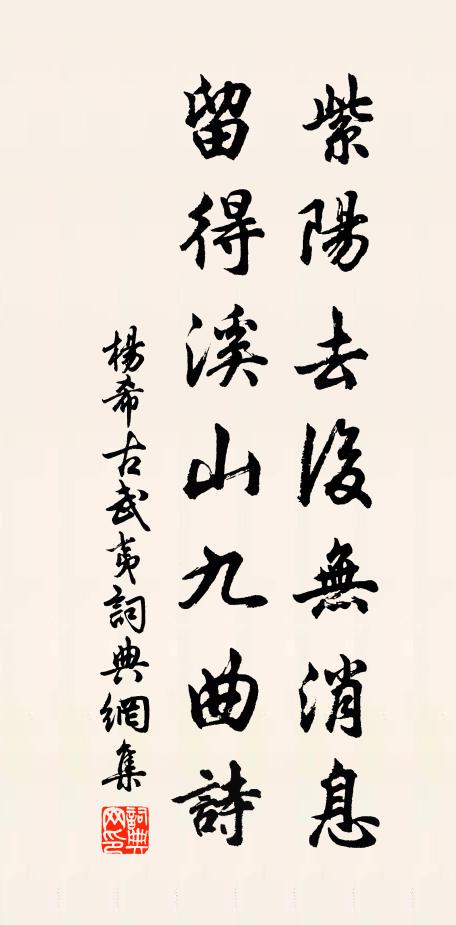 紫陽去後無消息
留得溪山九曲詩
楊希古武夷詞典網集
詞典網印